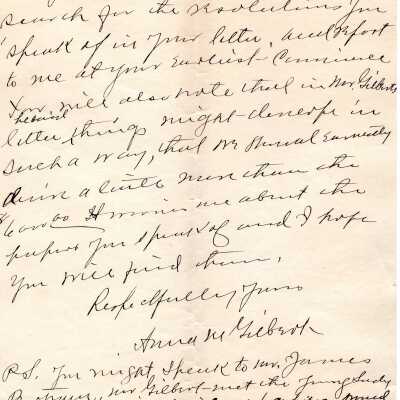 search for the resolutions you
speak of in your letter, and report
to me at your Earliest Convinence
You will also note that in Mr. Gilberts
second
letter things might develope in
such a way, that we should Earnestly
desire a little more than the
about the
papers you speak of and I hope
you will find them,
Respectfully Yours
Anna M Gilbert
P.S. You might speak to Mr. James
Mr Gilbert met the young Lady